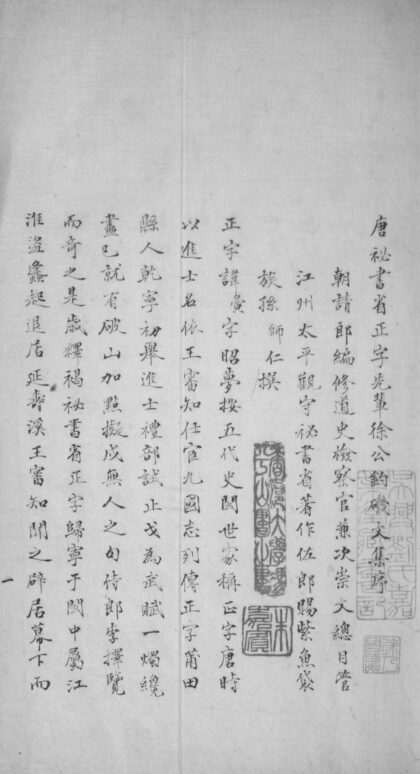 唐祕書省正字先輩徐公釣磯文集序
朝請郎編修道史檢察官兼次崇文總目管
江州太平觀守祕書省著作佐郎賜紫魚袋
族孫師仁撰
正字諱夤字昭夢按五代史閩世家稱正字唐時
以進士名依王審知仕宦九國志列傳正字莆田
縣人乾寧初舉進士禮部試止戈為武賦一燭纔
盡已就有破山加點擬戍無人之句侍郎李擇覽
而奇之是歲釋褐祕書省正字歸寧于閩中屬江
淮盜蠭起退居延壽溪王審知聞之辟居幕下而
一